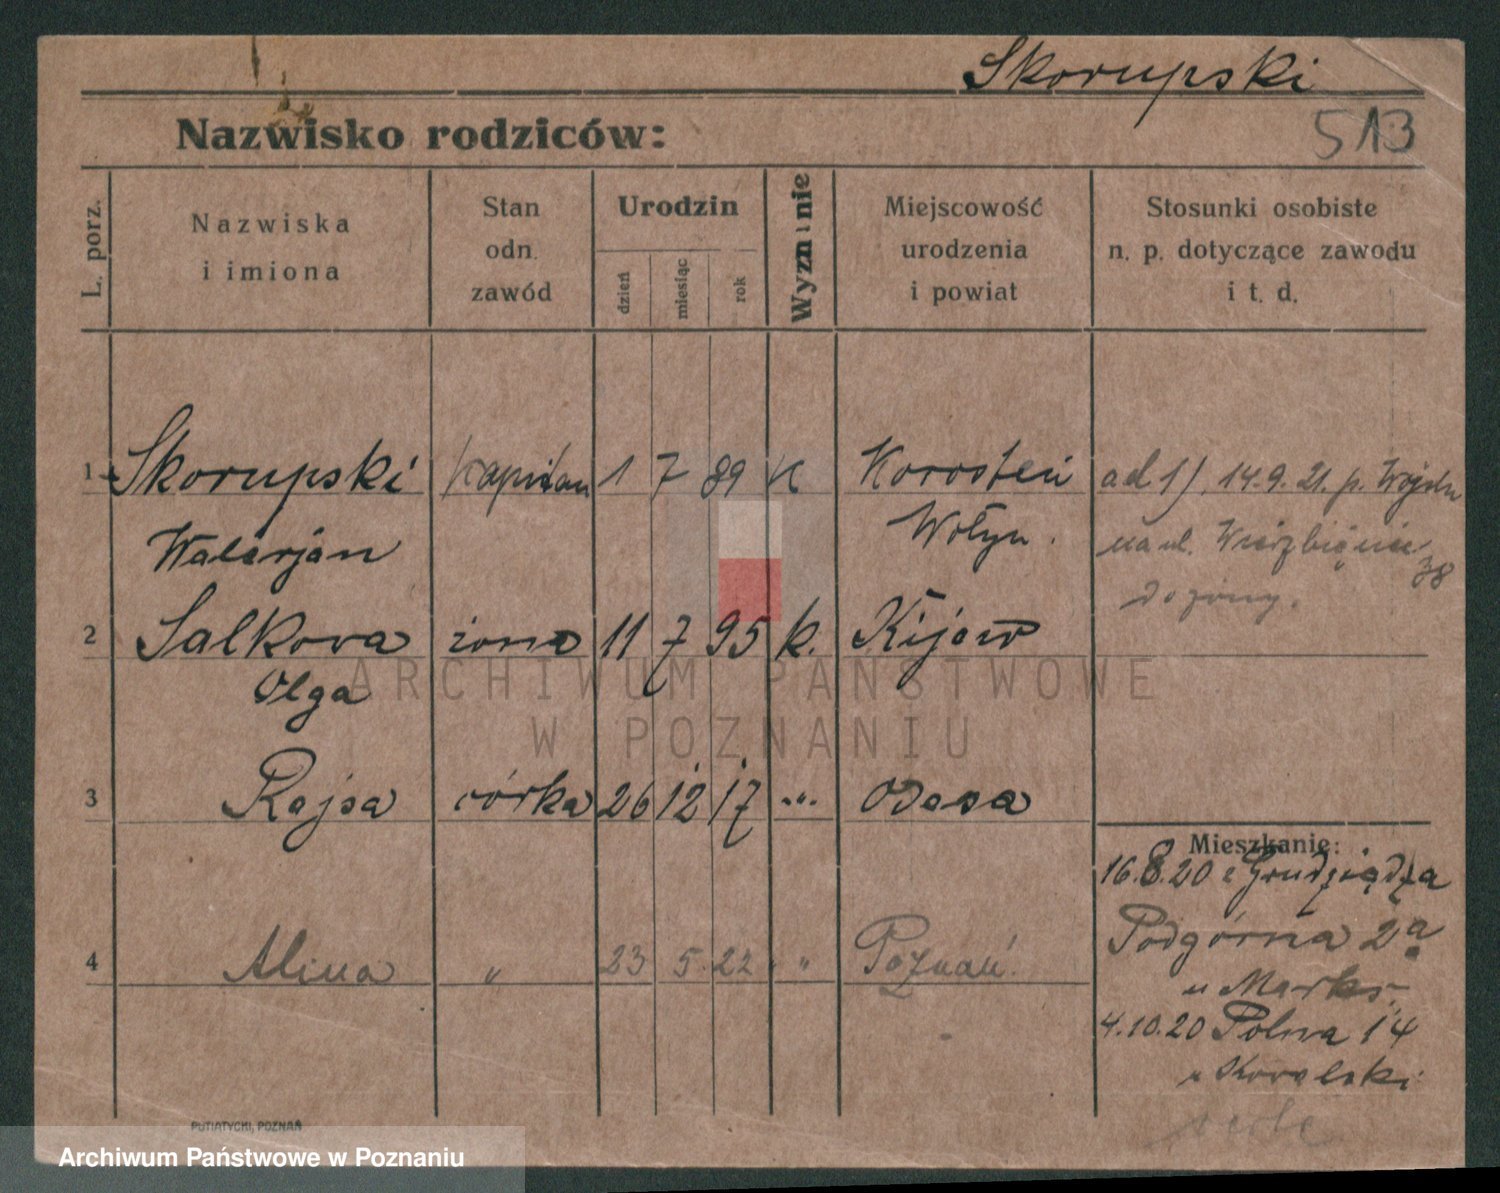 Skorupski
513
Nazwisko rodziców:
L. porz.
Nazwiska
i imiona
Stan
odn.
zawód
Urodzin
dzień
miesiąc
rok
Wyznanie
Miejscowość
urodzenia
i powiat
Stosunki osobiste
n. p. dotyczące zawodu
i t. d.
1 Skorupski kapitan 1 7 89 K Korosteń ad 1) 14.9.21. p. Wojsku
Walerjan Wołyń. na ul. Wierzbięcice 38
do żony.
2 Salkova żona 11 7 95 k. Kijow
Olga
ARCHIWUM PAŃSTWOWE
W POZNANIU
3 Rajsa córka 26 12 17 „ Odesa
Mieszkanie:
16.8.20 z Grudziądza
Podgórna 2a
u Marks.
4 Alina „ 23 5. 22 „ Poznań.
4.10.20 Polna 14
u Kowalski
PUTIATYCKI, POZNAŃ
Archiwum Państwowe w Poznaniu